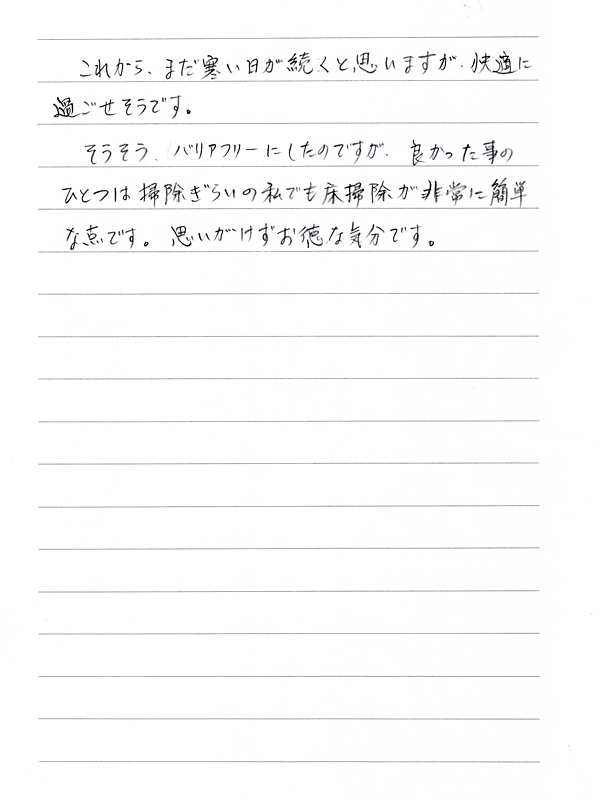 これから、まだ寒い日が続くと思いますが、快適に
過ごせそうです。
そうそう、バリアフリーにしたのですが、良かった事の
ひとつは掃除ぎらいの私でも床掃除が非常に簡単
な点です。思いがけずお徳な気分です。